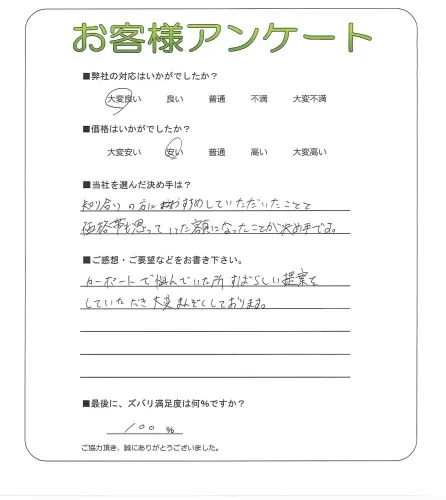 お客様アンケート
■弊社の対応はいかがでしたか？
大変良い 良い 普通 不満 大変不満
■価格はいかがでしたか？
大変安い 安い 普通 高い 大変高い
■当社を選んだ決め手は？
知り合いの方におすすめしていただいたことと
価格帯も思っていた額になったことが決め手です。
■ご感想・ご要望などをお書き下さい。
カーポートで悩んでいた所すばらしい提案を
していただき大変まんぞくしております。
■最後に、ズバリ満足度は何％ですか？
100 ％
ご協力頂き、誠にありがとうございました。